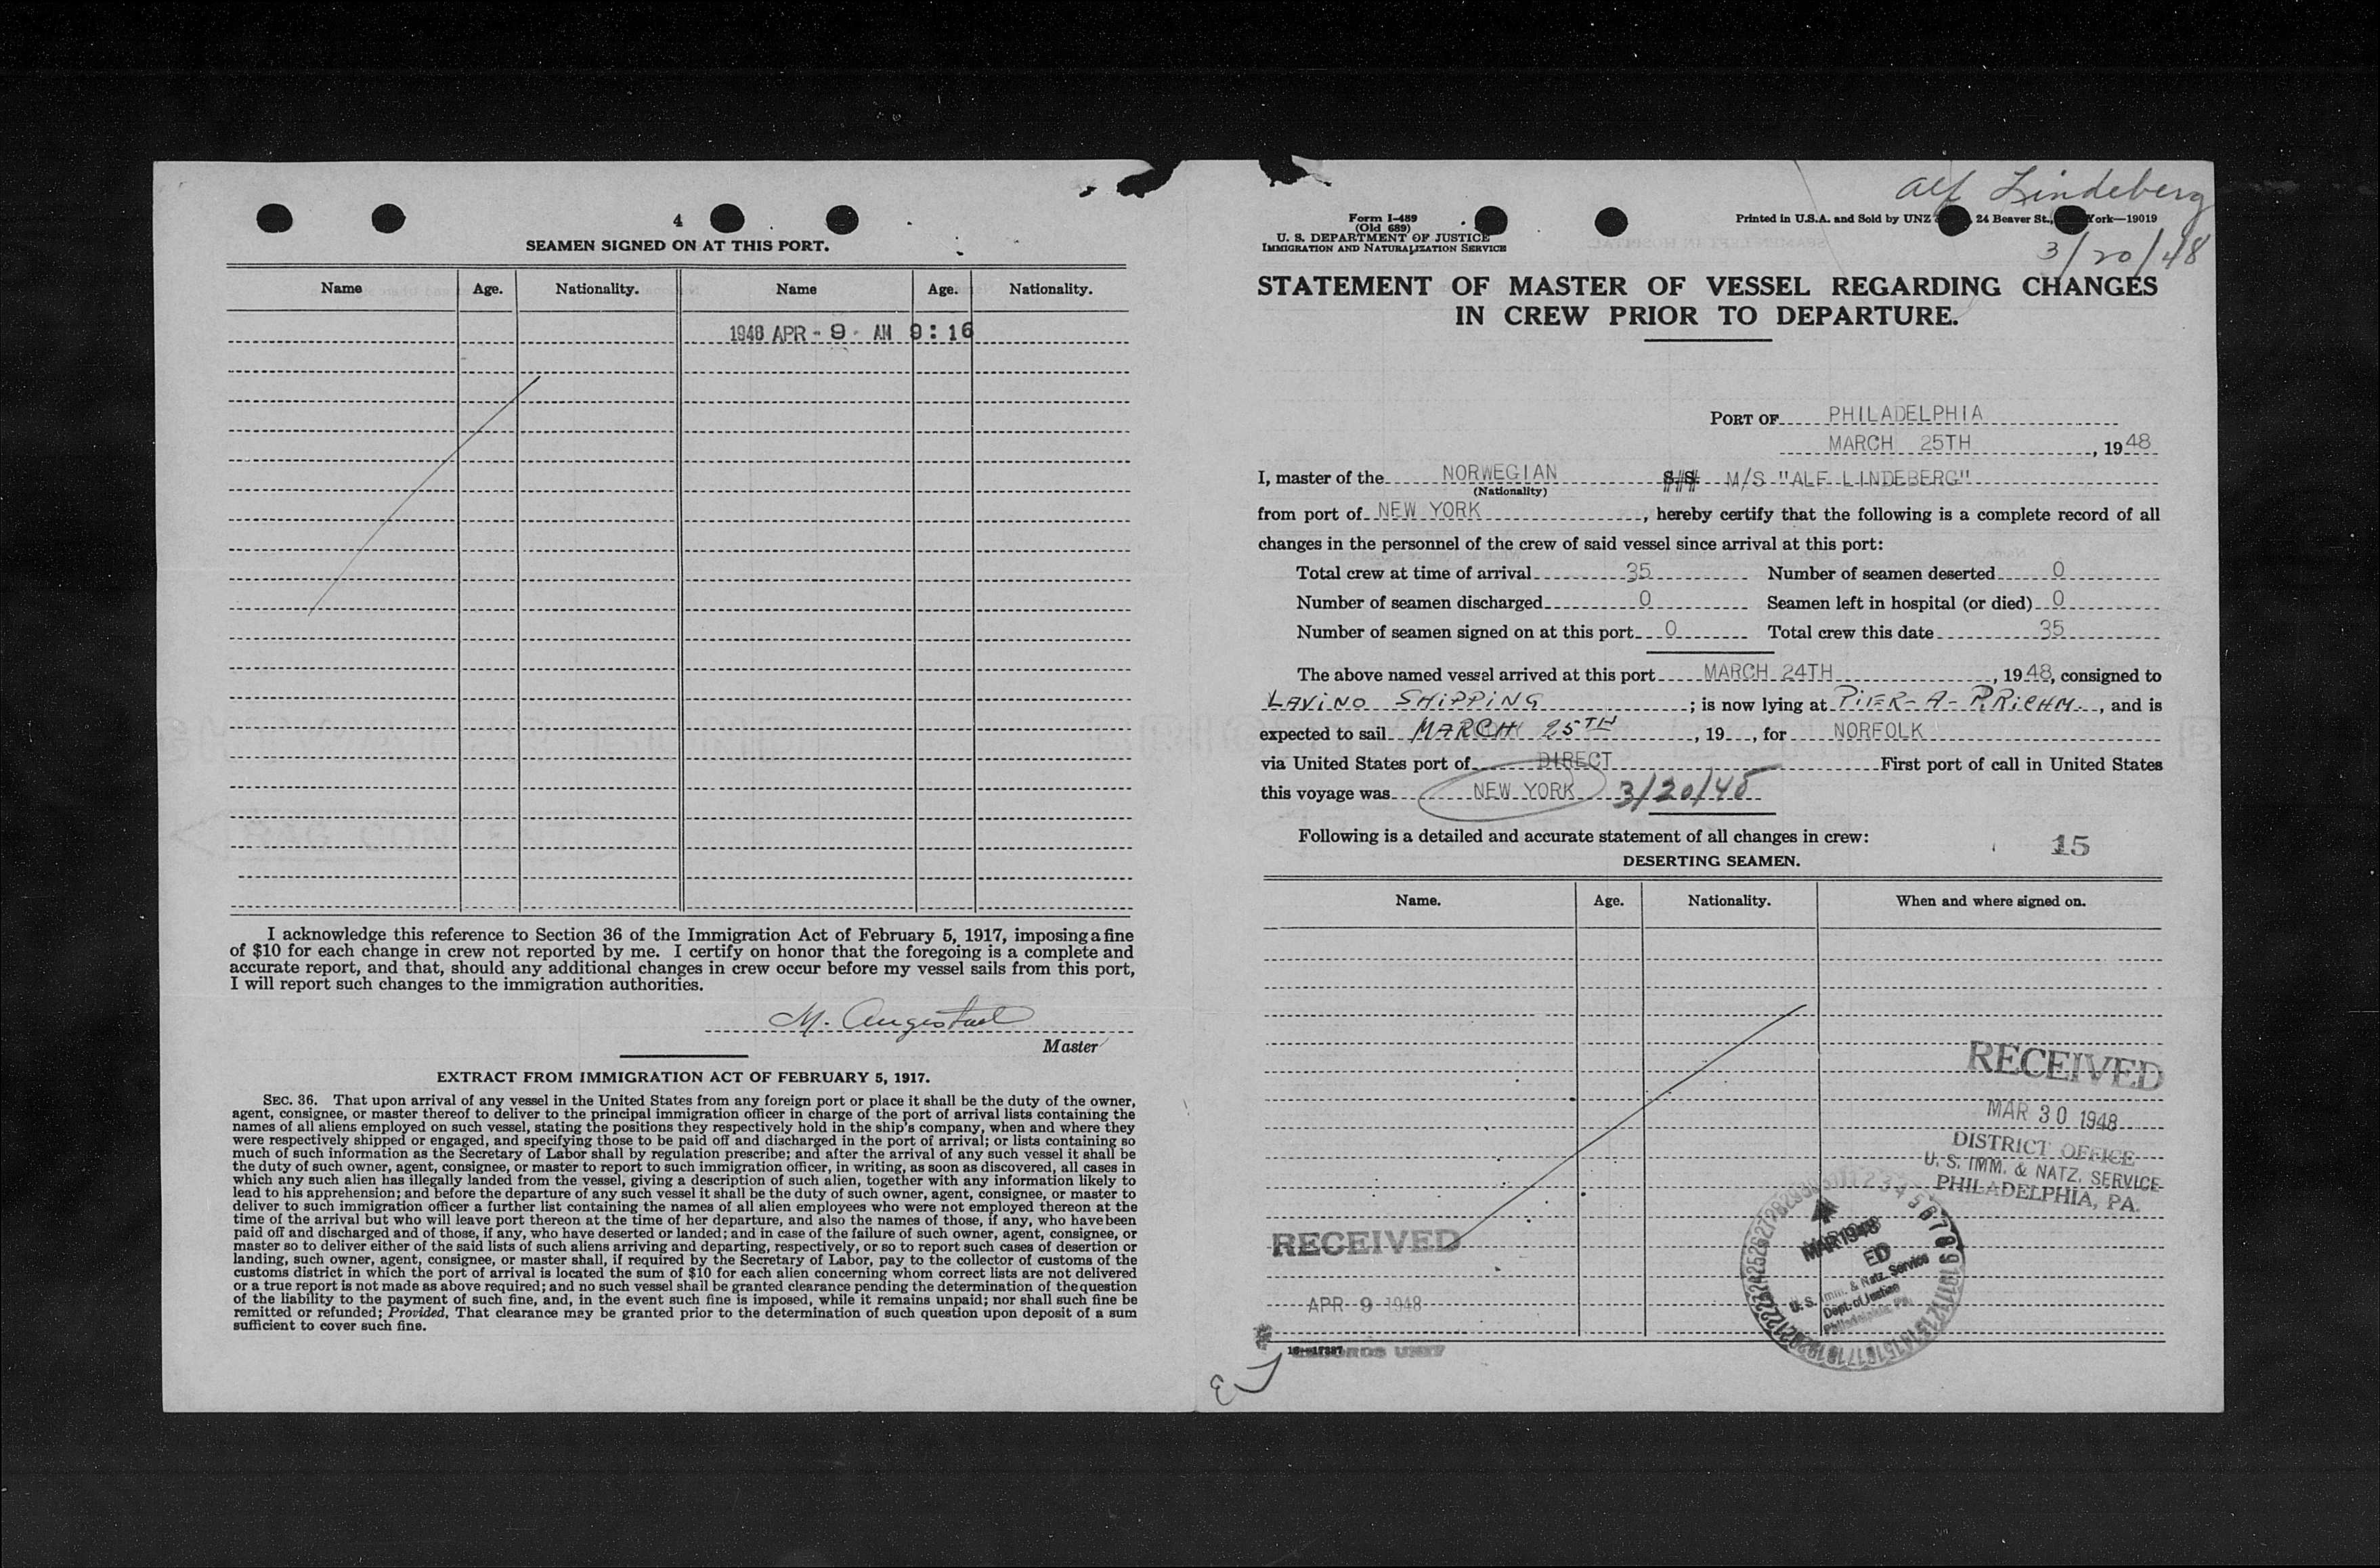 4
SEAMEN SIGNED ON AT THIS PORT.
Name Age. Nationality. Name Age. Nationality.
1948 APR - 9 - AM 9:16
I acknowledge this reference to Section 36 of the Immigration Act of February 5, 1917, imposing a fine
of $10 for each change in crew not reported by me. I certify on honor that the foregoing is a complete and
accurate report, and that, should any additional changes in crew occur before my vessel sails from this port,
I will report such changes to the immigration authorities.
M.
Master
EXTRACT FROM IMMIGRATION ACT OF FEBRUARY 5, 1917.
SEC. 36. That upon arrival of any vessel in the United States from any foreign port or place it shall be the duty of the owner,
agent, consignee, or master thereof to deliver to the principal immigration officer in charge of the port of arrival lists containing the
names of all aliens employed on such vessel, stating the positions they respectively hold in the ship's company, when and where they
were respectively shipped or engaged, and specifying those to be paid off and discharged in the port of arrival; or lists containing so
much of such information as the Secretary of Labor shall by regulation prescribe; and after the arrival of any such vessel it shall be
the duty of such owner, agent, consignee, or master to report to such immigration officer, in writing, as soon as discovered, all cases in
which any such alien has illegally landed from the vessel, giving a description of such alien, together with any information likely to
lead to his apprehension; and before the departure of any such vessel it shall be the duty of such owner, agent, consignee, or master to
deliver to such immigration officer a further list containing the names of all alien employees who were not employed thereon at the
time of the arrival but who will leave port thereon at the time of her departure, and also the names of those, if any, who have been
paid off and discharged and of those, if any, who have deserted or landed; and in case of the failure of such owner, agent, consignee, or
master so to deliver either of the said lists of such aliens arriving and departing, respectively, or so to report such cases of desertion or
landing, such owner, agent, consignee, or master shall, if required by the Secretary of Labor, pay to the collector of customs of the
customs district in which the port of arrival is located the sum of $10 for each alien concerning whom correct lists are not delivered
or a true report is not made as above required; and no such vessel shall be granted clearance pending the determination of the question
of the liability to the payment of such fine, and, in the event such fine is imposed, while it remains unpaid; nor shall such fine be
remitted or refunded; Provided, That clearance may be granted prior to the determination of such question upon deposit of a sum
sufficient to cover such fine.
Alf Lindeberg
3/20/48
Form I-489
(Old 689)
U. S. DEPARTMENT OF JUSTICE
IMMIGRATION AND NATURALIZATION SERVICE
Printed in U.S.A. and Sold by UNZ 24 Beaver St., York—19019
STATEMENT OF MASTER OF VESSEL REGARDING CHANGES
IN CREW PRIOR TO DEPARTURE.
PORT OF PHILADELPHIA
MARCH 25TH, 1948
I, master of the NORWEGIAN S/S M/S "ALF LINDEBERG"
(Nationality)
from port of NEW YORK, hereby certify that the following is a complete record of all
changes in the personnel of the crew of said vessel since arrival at this port:
Total crew at time of arrival 35 Number of seamen deserted 0
Number of seamen discharged 0 Seamen left in hospital (or died) 0
Number of seamen signed on at this port 0 Total crew this date 35
The above named vessel arrived at this port MARCH 24TH, 1948, consigned to
LAVINO SHIPPING; is now lying at PIER-A-P.RICHM., and is
expected to sail MARCH 25TH, 19 , for NORFOLK
via United States port of DIRECT First port of call in United States
this voyage was NEW YORK 3/20/48
Following is a detailed and accurate statement of all changes in crew:
15
DESERTING SEAMEN.
Name. Age. Nationality. When and where signed on.
RECEIVED
MAR 30 1948
DISTRICT OFFICE
U. S. IMM. & NATZ. SERVICE
PHILADELPHIA, PA.
MAR 1948
ED
U. S. Imm. & Natz. Service
Dept. of Justice
Philadelphia, Pa.
RECEIVED
APR 9 1948
RECORDS UNIT